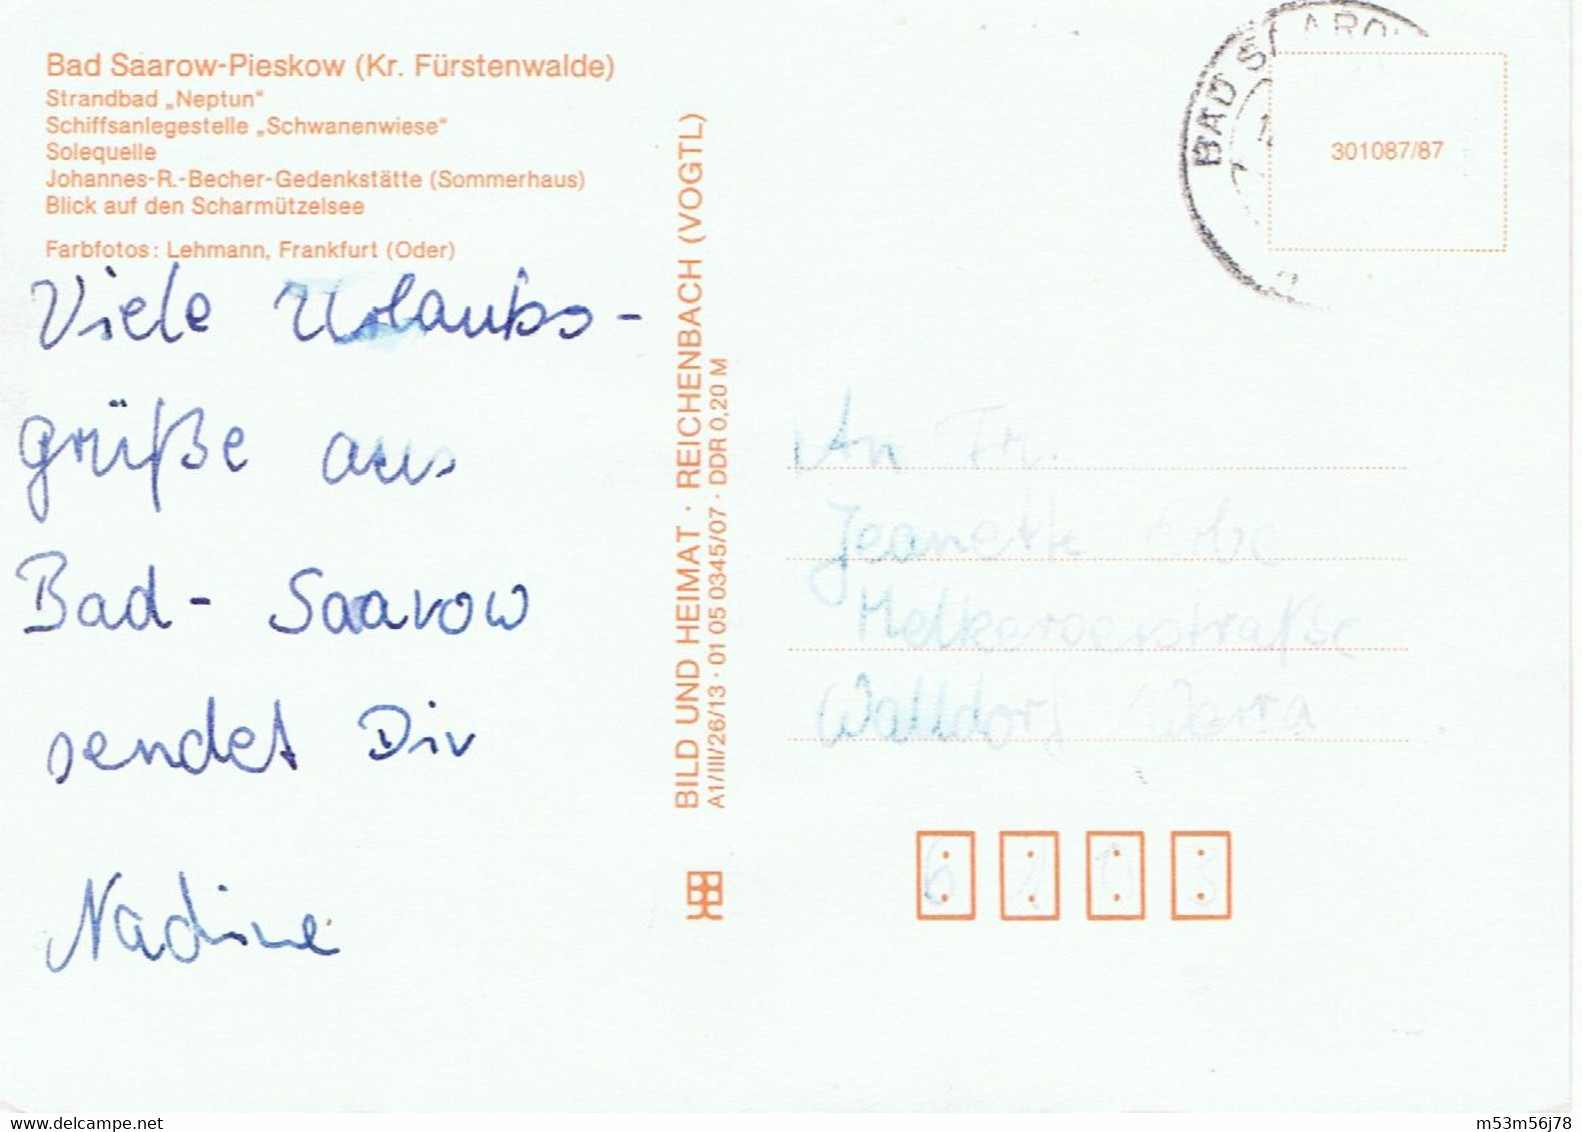 Bad Saarow-Pieskow (Kr. Fürstenwalde)
Strandbad „Neptun“
Schiffsanlegestelle „Schwanenwiese“
Solequelle
Johannes-R.-Becher-Gedenkstätte (Sommerhaus)
Blick auf den Scharmützelsee
Farbfotos: Lehmann, Frankfurt (Oder)
Viele Urlaubs-
grüße aus
Bad-Saarow
sendet Dir
Nadine
BILD UND HEIMAT · REICHENBACH (VOGTL)
A1/III/26/13 · 01 05 0345/07 · DDR 0,20 M
BAD SAARO
301087/87
An Fr.
Jeanette
Walldorf / Werra
6 1 1 3
www.delcampe.net
m53m56j78